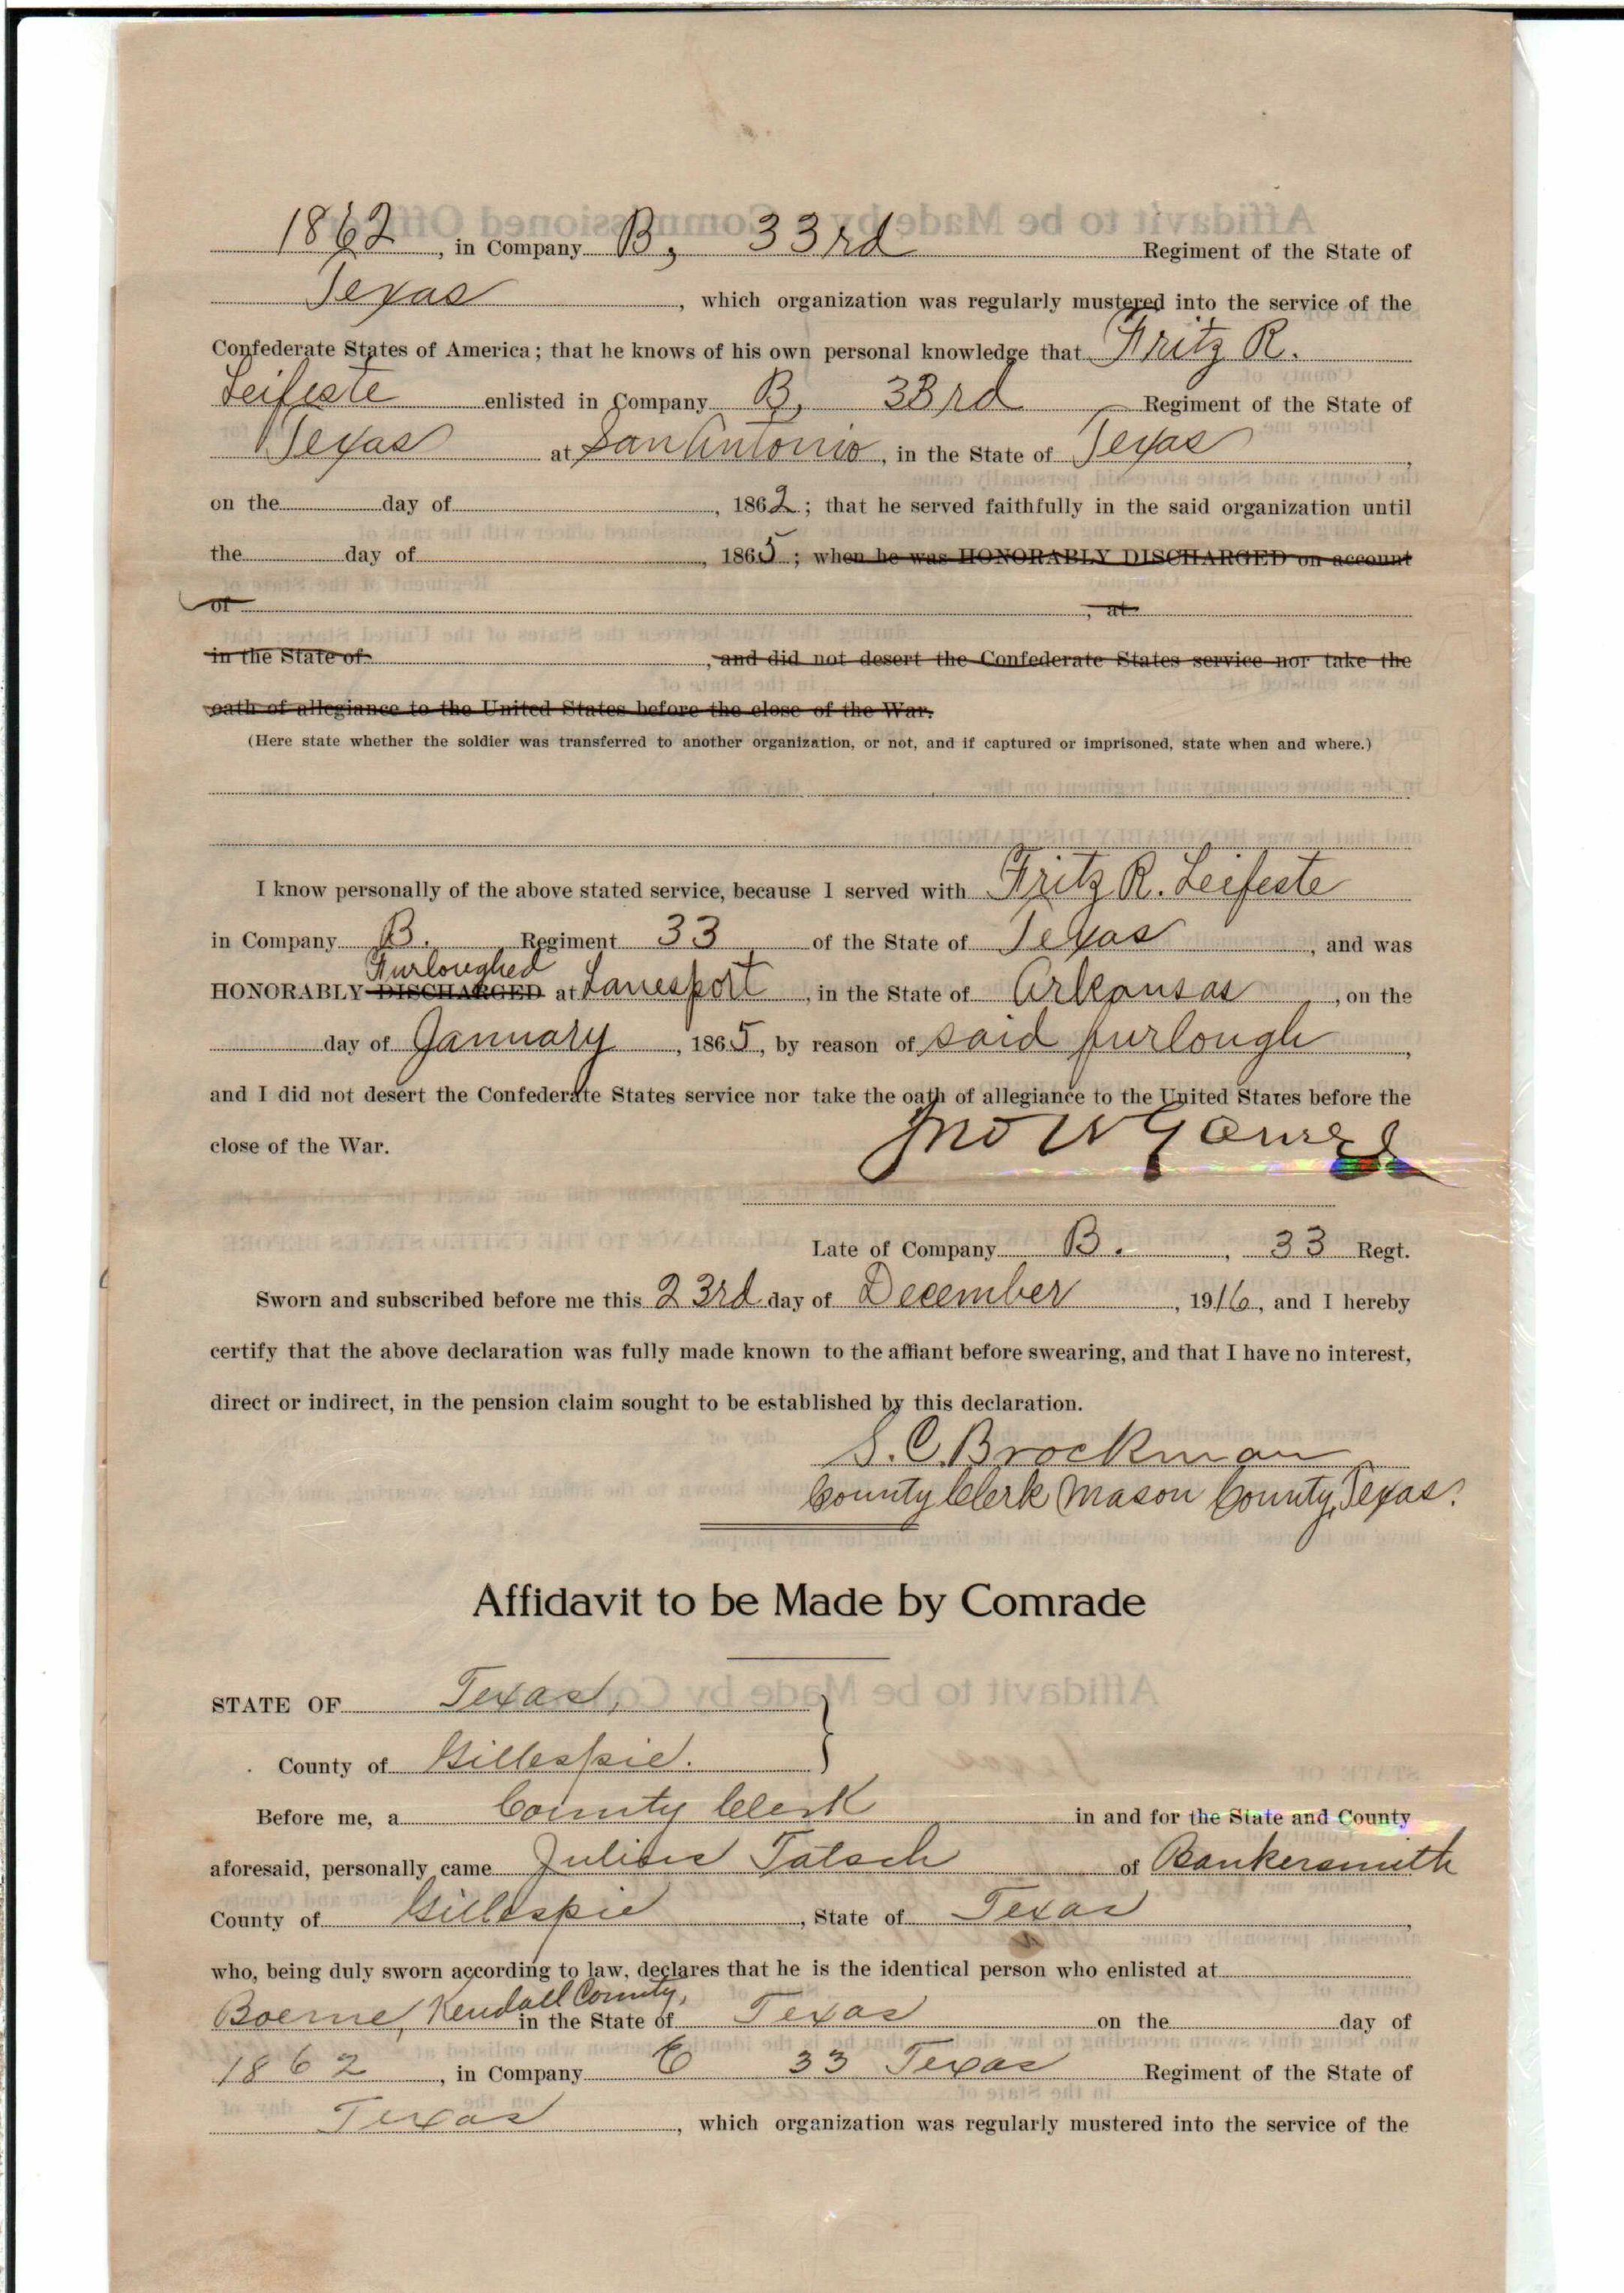 1862, in Company B, 33rd Regiment of the State of
Texas, which organization was regularly mustered into the service of the
Confederate States of America; that he knows of his own personal knowledge that Fritz R.
Leifeste enlisted in Company B, 33rd Regiment of the State of
Texas at San Antonio, in the State of Texas,
on the day of , 1862; that he served faithfully in the said organization until
the day of , 1865; when he was HONORABLY DISCHARGED on account
of , at
in the State of , and did not desert the Confederate States service nor take the
oath of allegiance to the United States before the close of the War.
(Here state whether the soldier was transferred to another organization, or not, and if captured or imprisoned, state when and where.)
I know personally of the above stated service, because I served with Fritz R. Leifeste
in Company B. Regiment 33 of the State of Texas, and was
Furloughed
HONORABLY DISCHARGED at Lanesport, in the State of Arkansas, on the
day of January, 1865, by reason of said furlough,
and I did not desert the Confederate States service nor take the oath of allegiance to the United States before the
close of the War.
Jno W Gamel
Late of Company B., 33 Regt.
Sworn and subscribed before me this 23rd day of December, 1916, and I hereby
certify that the above declaration was fully made known to the affiant before swearing, and that I have no interest,
direct or indirect, in the pension claim sought to be established by this declaration.
S. C. Brockman
County Clerk Mason County, Texas.
Affidavit to be Made by Comrade
STATE OF Texas,
County of Gillespie.
Before me, a County Clerk in and for the State and County
aforesaid, personally came Julius Tatsch of Bankersmith
County of Gillespie, State of Texas,
who, being duly sworn according to law, declares that he is the identical person who enlisted at
Boerne, Kendall County, in the State of Texas on the day of
1862, in Company E 33 Texas Regiment of the State of
Texas, which organization was regularly mustered into the service of the